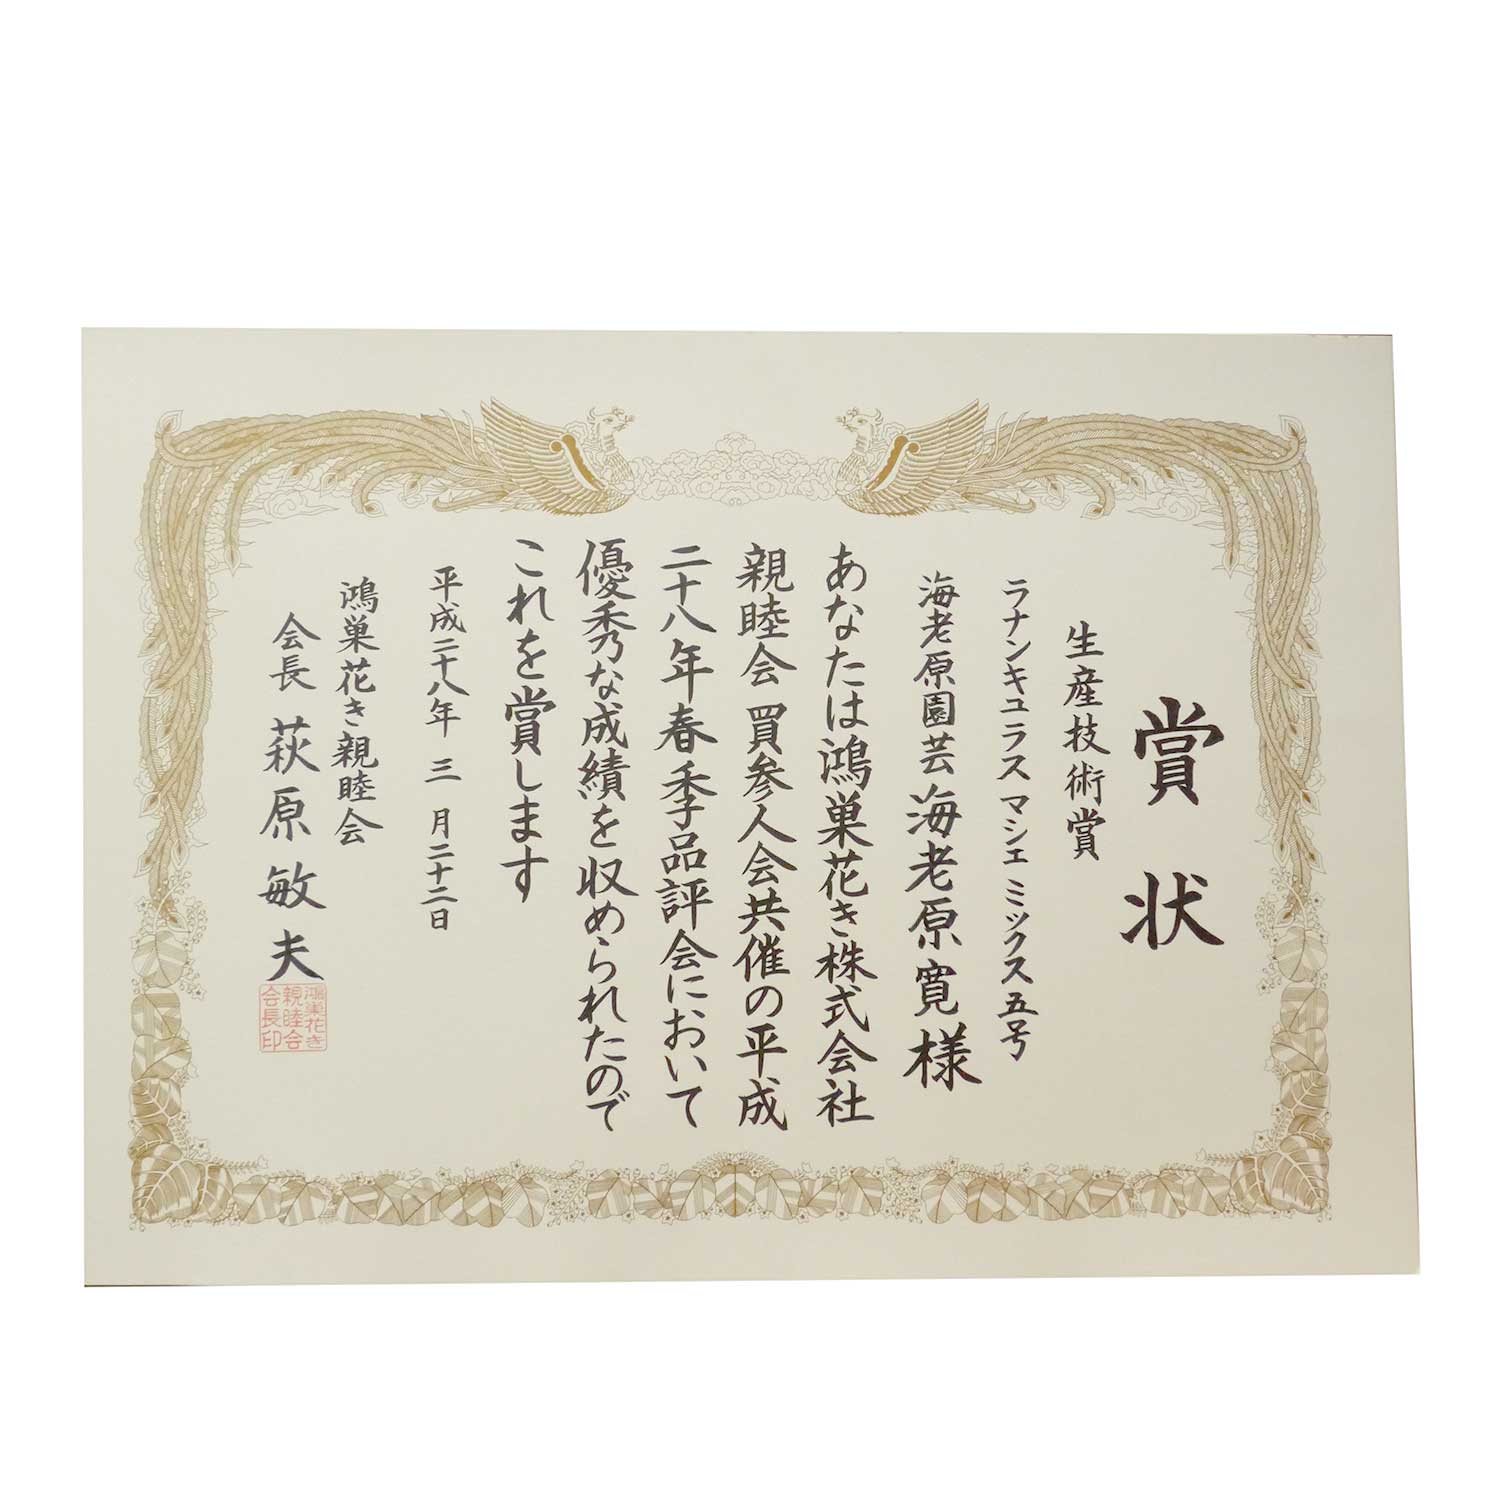 賞状
生産技術賞
ラナンキュラス マシェ ミックス五号
海老原園芸 海老原寛様
あなたは鴻巣花き株式会社
親睦会 買参人会共催の平成
二十八年春季品評会において
優秀な成績を収められたので
これを賞します
平成二十八年 三 月二十二日
鴻巣花き親睦会
会長 萩原敏夫
鴻巣花き
親睦会
会長印